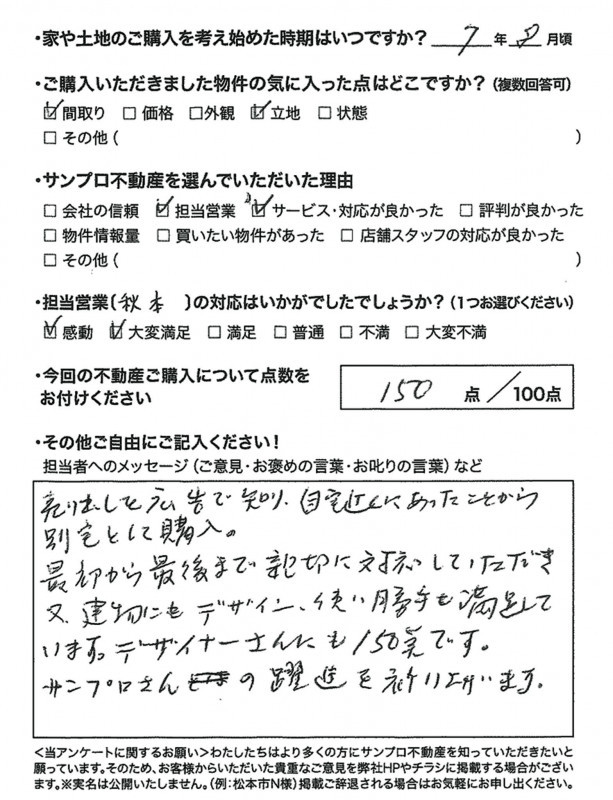 ・家や土地のご購入を考え始めた時期はいつですか? 7 年 8 月頃
・ご購入いただきました物件の気に入った点はどこですか?(複数回答可)
☑間取り □価格 □外観 ☑立地 □状態
□その他( )
・サンプロ不動産を選んでいただいた理由
□会社の信頼 ☑担当営業 ☑サービス・対応が良かった □評判が良かった
□物件情報量 □買いたい物件があった □店舗スタッフの対応が良かった
□その他( )
・担当営業〔秋本 〕の対応はいかがでしたでしょうか?(1つお選びください)
☑感動 ☑大変満足 □満足 □普通 □不満 □大変不満
・今回の不動産ご購入について点数を
お付けください
150 点/100点
・その他ご自由にご記入ください!
担当者へのメッセージ(ご意見・お褒めの言葉・お叱りの言葉)など
売り出しを広告で知り、自宅近くにあったことから
別宅として購入。
最初から最後まで親切に対応していただき
又、建物にもデザイン、使い勝手も満足して
います。デザイナーさんにも150点です。
サンプロさんの躍進を祈り上げいます。
<当アンケートに関するお願い>わたしたちはより多くの方にサンプロ不動産を知っていただきたいと
願っています。そのため、お客様からいただいた貴重なご意見を弊社HPやチラシに掲載する場合がござい
ます。※実名は公開いたしません。(例:松本市N様)掲載ご辞退される場合はお気軽にお申し出ください。